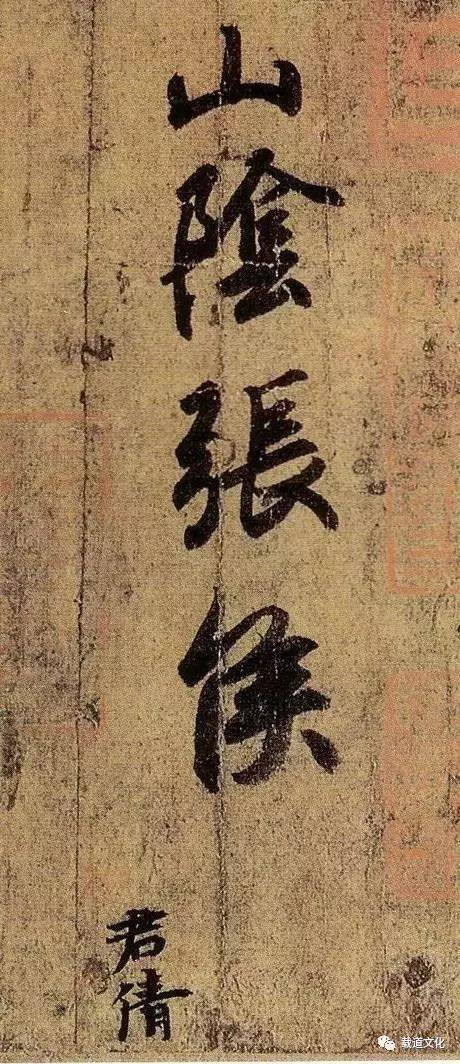 山陰張侯
君倩
载道文化